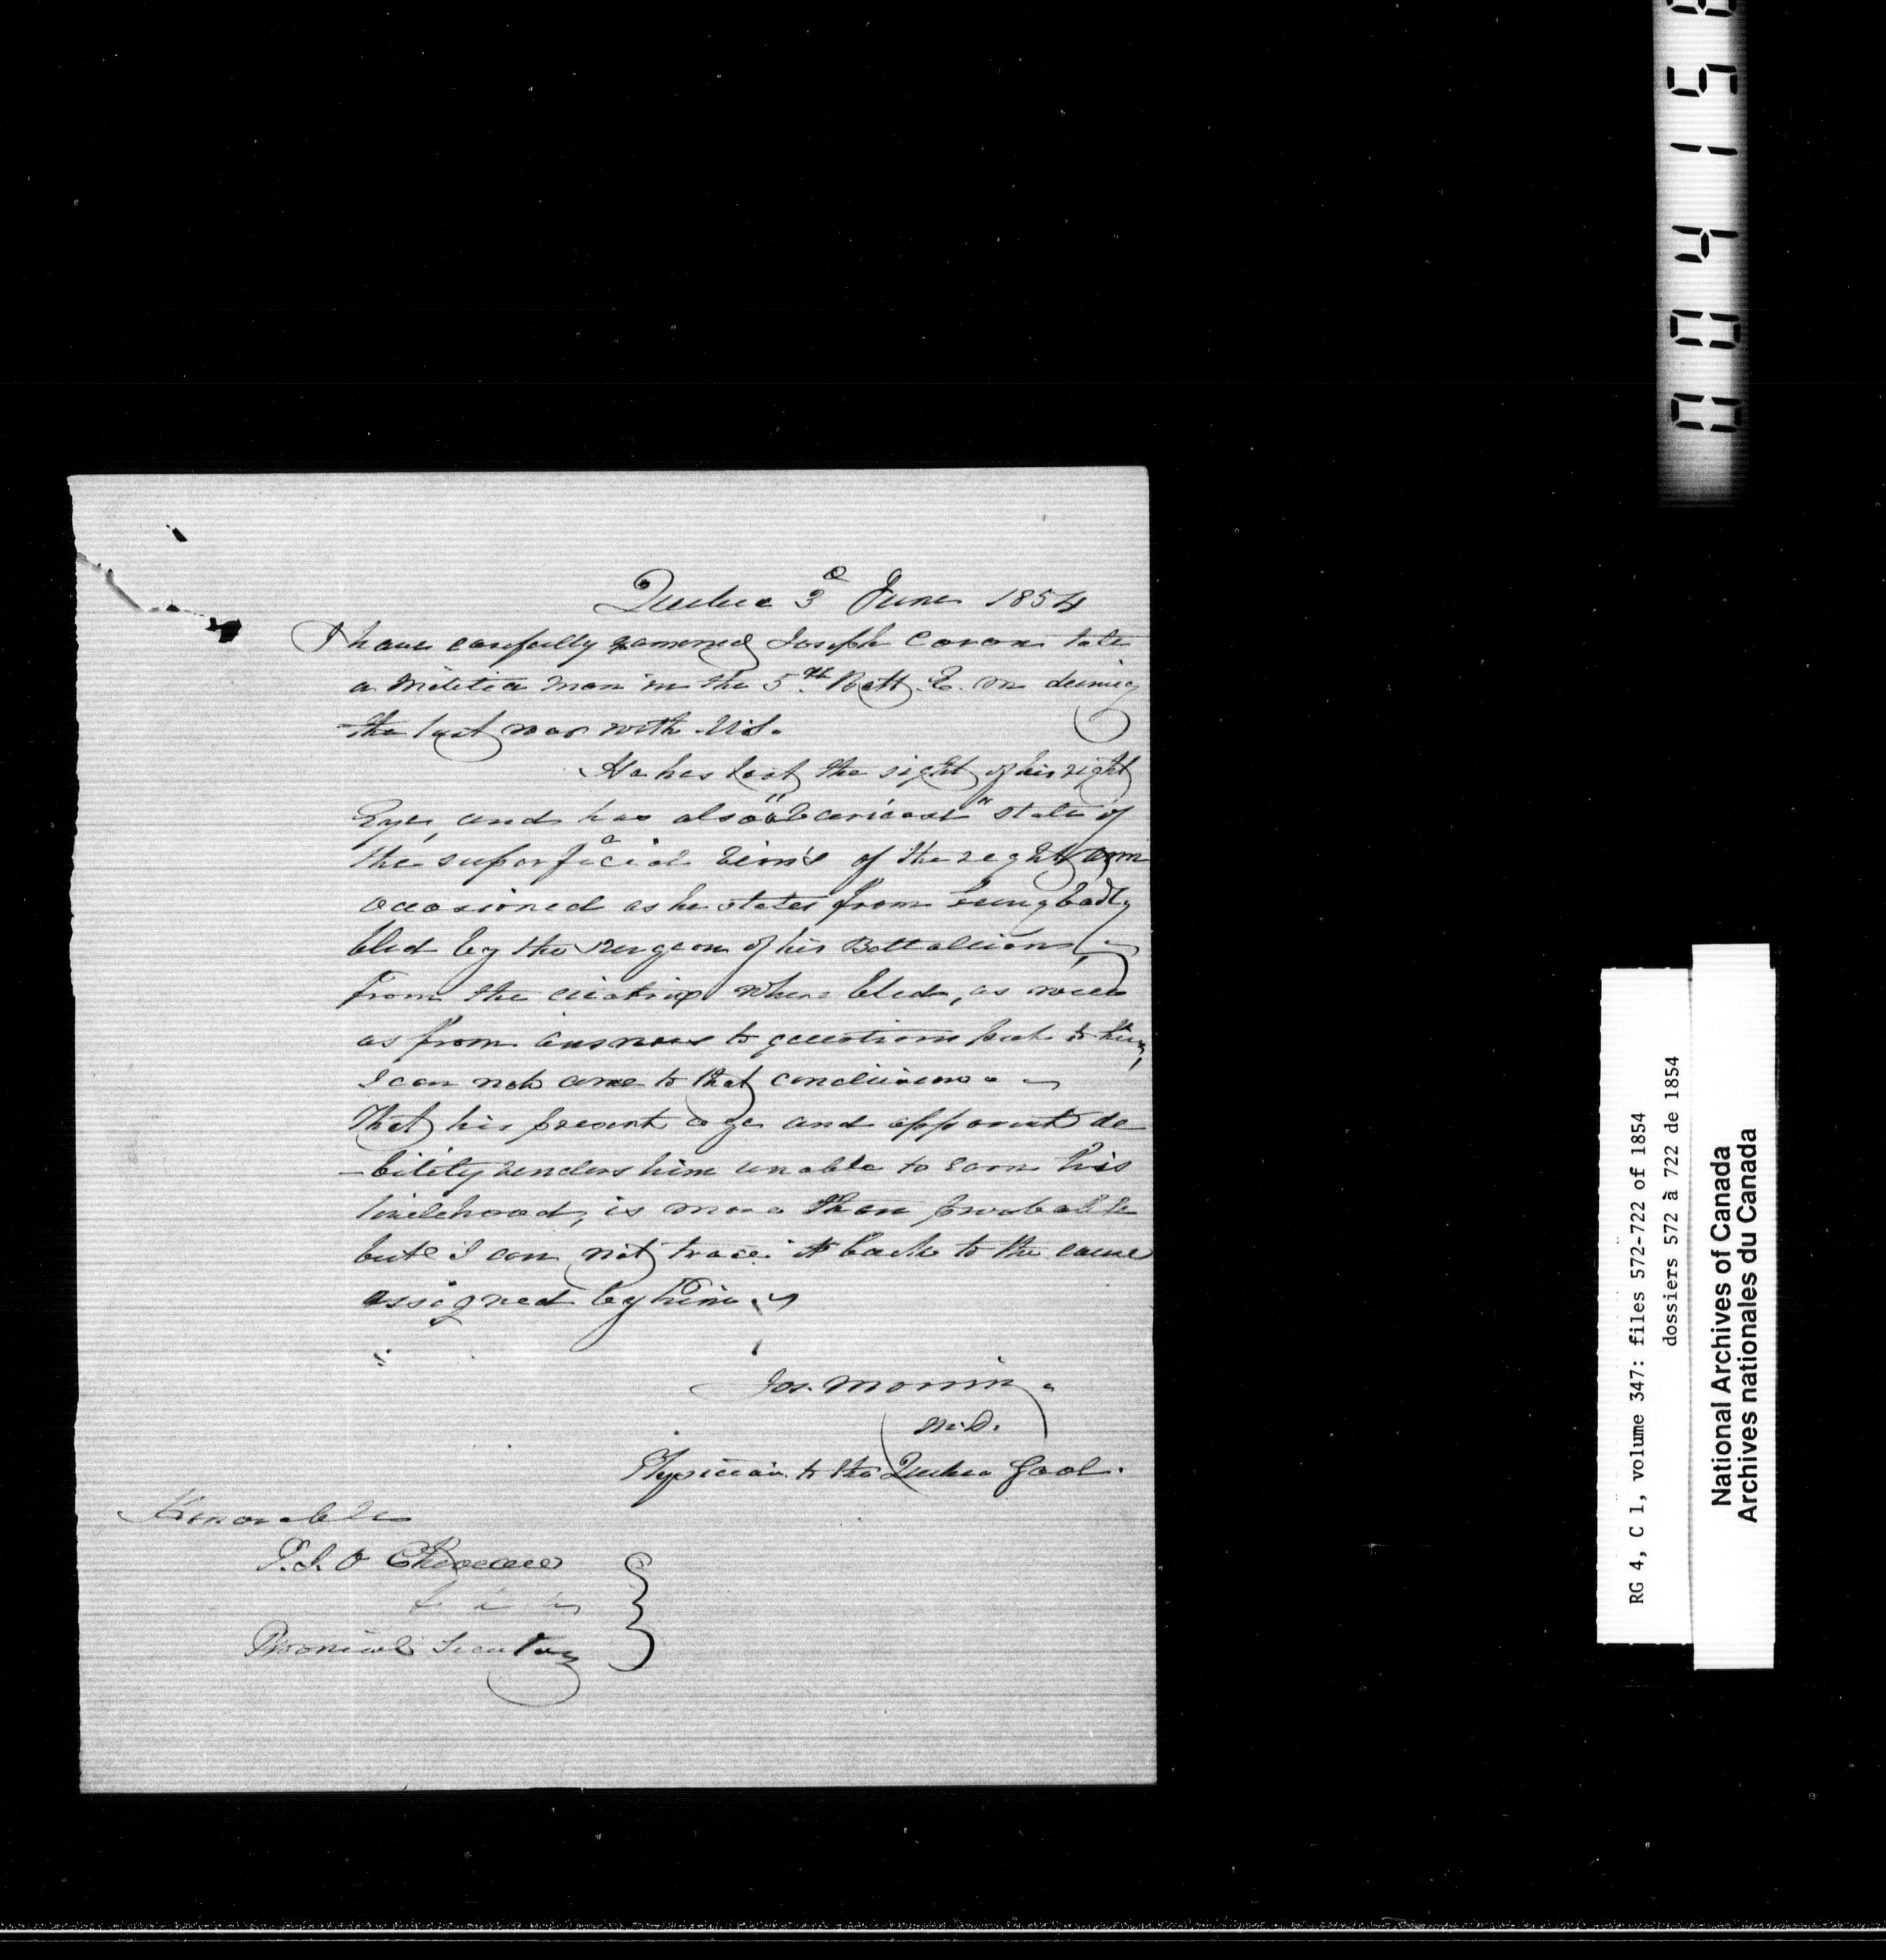 Quebec 3d June 1854
I have carefully examined Joseph Caron late
a Militia man in the 5th Batt. E. M during
the last war with U.S.
He has lost the sight of his right
Eye, and has also a "Varicose" state of
the superfacial veins of the right arm
occasioned as he states from being badly
bled by the surgeon of his Battallion,
From the cicatrix where bled, as well
as from answers to questions put to him,
I can not come to that conclusion.
That his present age and apparent de
-bility renders him unable to earn his
livelehood, is more than probable
but I can not trace it back to the cause
assigned by him.
Jos. Morrin.
M.D.
Physician to the Quebec Gaol.
Honorable
P. J. O Chauveau
Provincial Secretary
004158
RG 4, C 1, volume 347: files 572-722 of 1854
dossiers 572 à 722 de 1854
National Archives of Canada
Archives nationales du Canada